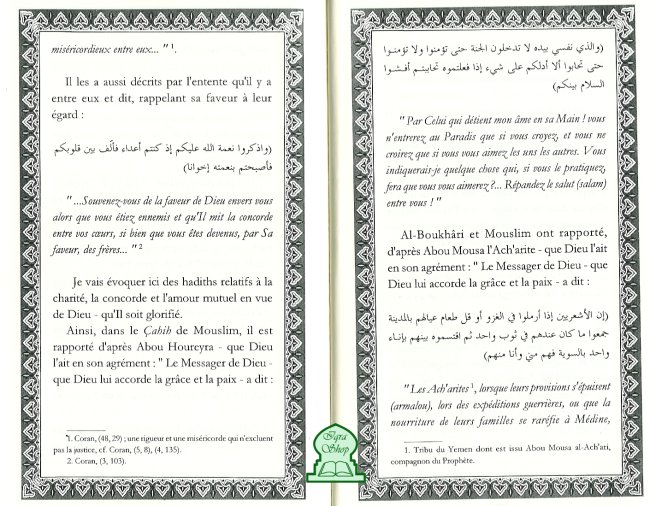 miséricordieux entre eux... " 1.
Il les a aussi décrits par l'entente qu'il y a
entre eux et dit, rappelant sa faveur à leur
égard :
(واذكروا نعمة الله عليكم إذ كنتم أعداء فألف بين قلوبكم
فأصبحتم بنعمته إخوانا)
" ...Souvenez-vous de la faveur de Dieu envers vous
alors que vous étiez ennemis et qu'Il mit la concorde
entre vos cœurs, si bien que vous êtes devenus, par Sa
faveur, des frères... " 2
Je vais évoquer ici des hadiths relatifs à la
charité, la concorde et l'amour mutuel en vue
de Dieu - qu'Il soit glorifié.
Ainsi, dans le Çahib de Mouslim, il est
rapporté d'après Abou Houreyra - que Dieu
l'ait en son agrément : " Le Messager de Dieu -
que Dieu lui accorde la grâce et la paix - a dit :
1. Coran, (48, 29) ; une rigueur et une miséricorde qui n'excluent
pas la justice, cf. Coran, (5, 8), (4, 135).
2. Coran, (3, 103).
(والذي نفسي بيده لا تدخلون الجنة حتى تؤمنوا ولا تؤمنوا
حتى تحابوا ألا أدلكم على شيء إذا فعلتموه تحاببتم أفشوا
السلام بينكم)
" Par Celui qui détient mon âme en sa Main ! vous
n'entrerez au Paradis que si vous croyez, et vous ne
croirez que si vous vous aimez les uns les autres. Vous
indiquerais-je quelque chose qui, si vous le pratiquez,
fera que vous vous aimerez ?... Répandez le salut (salam)
entre vous ! "
Al-Boukhâri et Mouslim ont rapporté,
d'après Abou Mousa l'Ach'arite - que Dieu l'ait
en son agrément : " Le Messager de Dieu - que
Dieu lui accorde la grâce et la paix - a dit :
(إن الأشعريين إذا أرملوا في الغزو أو قل طعام عيالهم بالمدينة
جمعوا ما كان عندهم في ثوب واحد ثم اقتسموه بينهم بإناء
واحد بالسوية فهم مني وأنا منهم)
" Les Ach'arites 1, lorsque leurs provisions s'épuisent
(armalou), lors des expéditions guerrières, ou que la
nourriture de leurs familles se raréfie à Médine,
1. Tribu du Yemen dont est issu Abou Mousa al-Ach'ari,
compagnon du Prophète.
Iqra
Shop